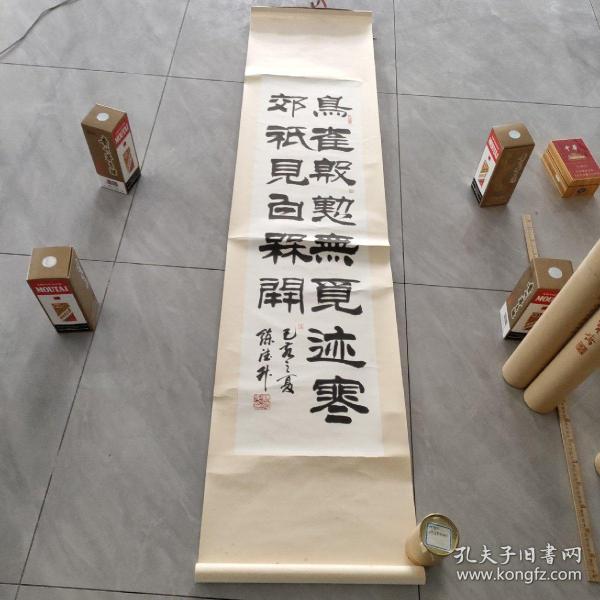 鳥雀殷懃無覓迹寒
郊祇見白槑開
己亥之夏
MOUTAI
MOUTAI
中華
孔夫子旧書网
www.kongfz.com